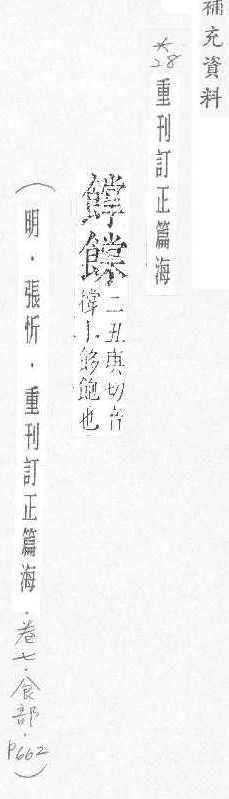 補充資料
*28 重刊訂正篇海
二丑切音
飽也
(明．張忻．重刊訂正篇海．卷七．食部．P662)